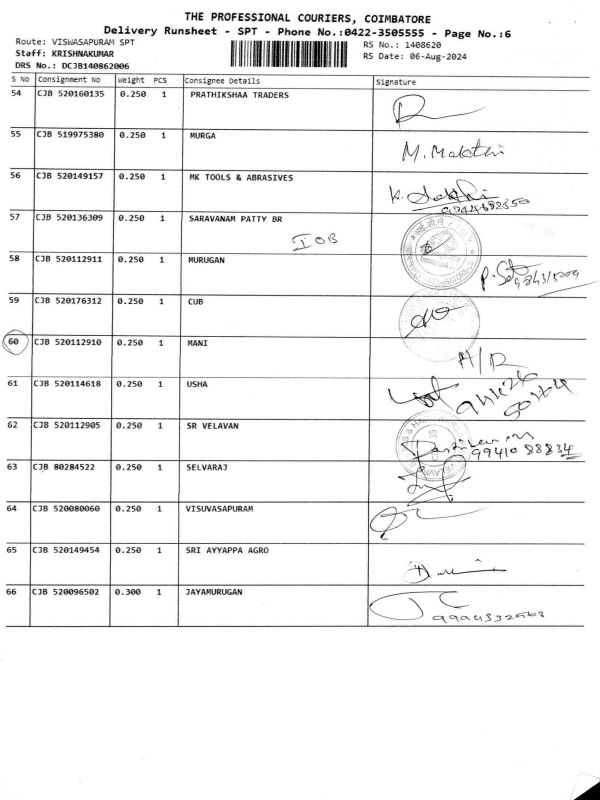 THE PROFESSIONAL COURIERS, COIMBATORE
Delivery Runsheet - SPT - Phone No.:0422-3505555 - Page No.:6
Route: VISWASAPURAM SPT RS No.: 1408620
Staff: KRISHNAKUMAR RS Date: 06-Aug-2024
DRS No.: DCJB140862006
S No Consignment No Weight PCS Consignee Details Signature
54 CJB 520160135 0.250 1 PRATHIKSHAA TRADERS
55 CJB 519975380 0.250 1 MURGA
56 CJB 520149157 0.250 1 MK TOOLS & ABRASIVES
57 CJB 520136309 0.250 1 SARAVANAM PATTY BR
IOB
58 CJB 520112911 0.250 1 MURUGAN
59 CJB 520176312 0.250 1 CUB
60 CJB 520112910 0.250 1 MANI
61 CJB 520114618 0.250 1 USHA
62 CJB 520112905 0.250 1 SR VELAVAN
99410 88834
63 CJB 80284522 0.250 1 SELVARAJ
64 CJB 520080060 0.250 1 VISUVASAPURAM
65 CJB 520149454 0.250 1 SRI AYYAPPA AGRO
66 CJB 520096502 0.300 1 JAYAMURUGAN